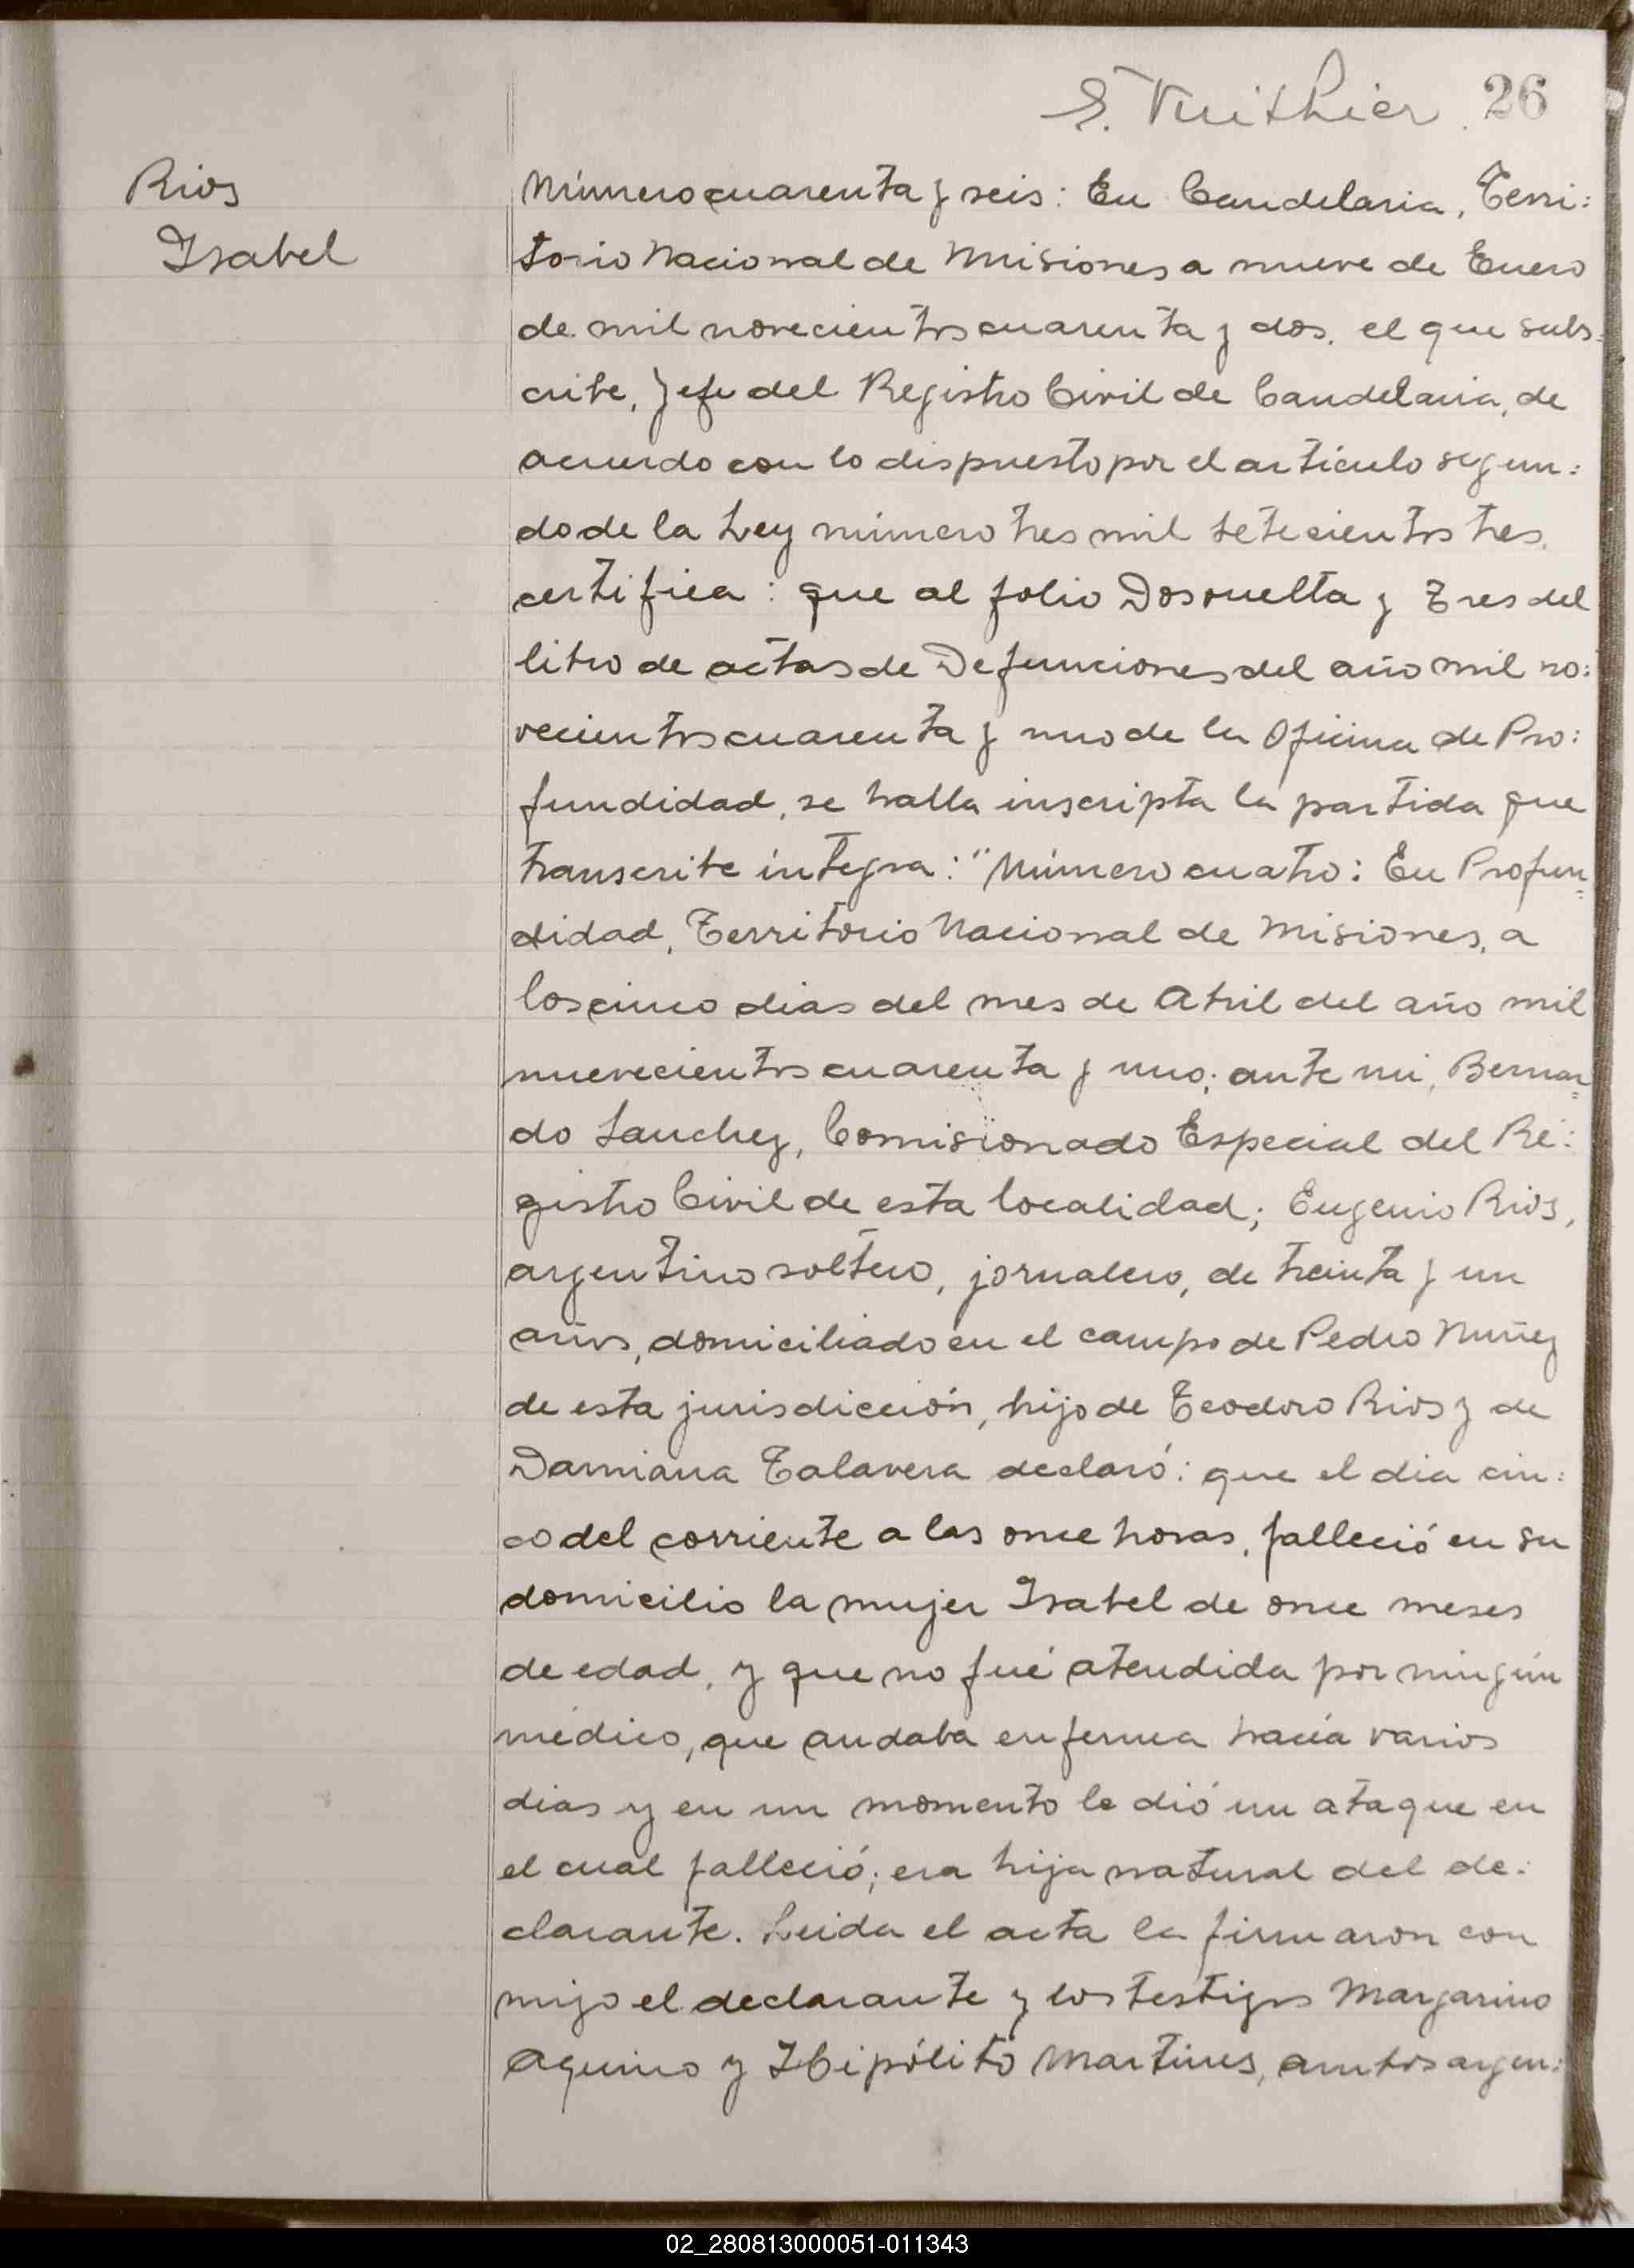 S. Vuithier. 26
Rios
Isabel
Número cuarenta y seis: En Candelaria, Terri:
torio Nacional de Misiones a nueve de Enero
de mil novecientos cuarenta y dos, el que subs:
cribe, Jefe del Registro Civil de Candelaria, de
acuerdo con lo dispuesto por el artículo segun:
do de la Ley número tres mil setecientos tres,
certifica: que al folio Dos vuelta y Tres del
libro de actas de Defunciones del año mil no:
vecientos cuarenta y uno de la Oficina de Pro:
fundidad, se halla inscripta la partida que
transcribe íntegra: "Número cuatro: En Profun=
didad, Territorio Nacional de Misiones, a
los cinco dias del mes de Abril del año mil
nuevecientos cuarenta y uno; ante mi, Bernar=
do Sanchez, Comisionado Especial del Re:
gistro Civil de esta localidad; Eugenio Rios,
argentino soltero, jornalero, de treinta y un
años, domiciliado en el campo de Pedro Nuñez
de esta jurisdicción, hijo de Teodoro Rios y de
Damiana Talavera declaró: que el dia cin:
co del corriente a las once horas, falleció en su
domicilio la mujer Isabel de once meses
de edad, y que no fué atendida por ningún
médico, que andaba enferma hacía varios
dias y en un momento le dió un ataque en
el cual falleció; era hija natural del de:
clarante. Leida el acta la firmaron con
migo el declarante y los testigos Margarino
Aquino y Hipólito Martines, ambos argen:
02_280813000051-011343